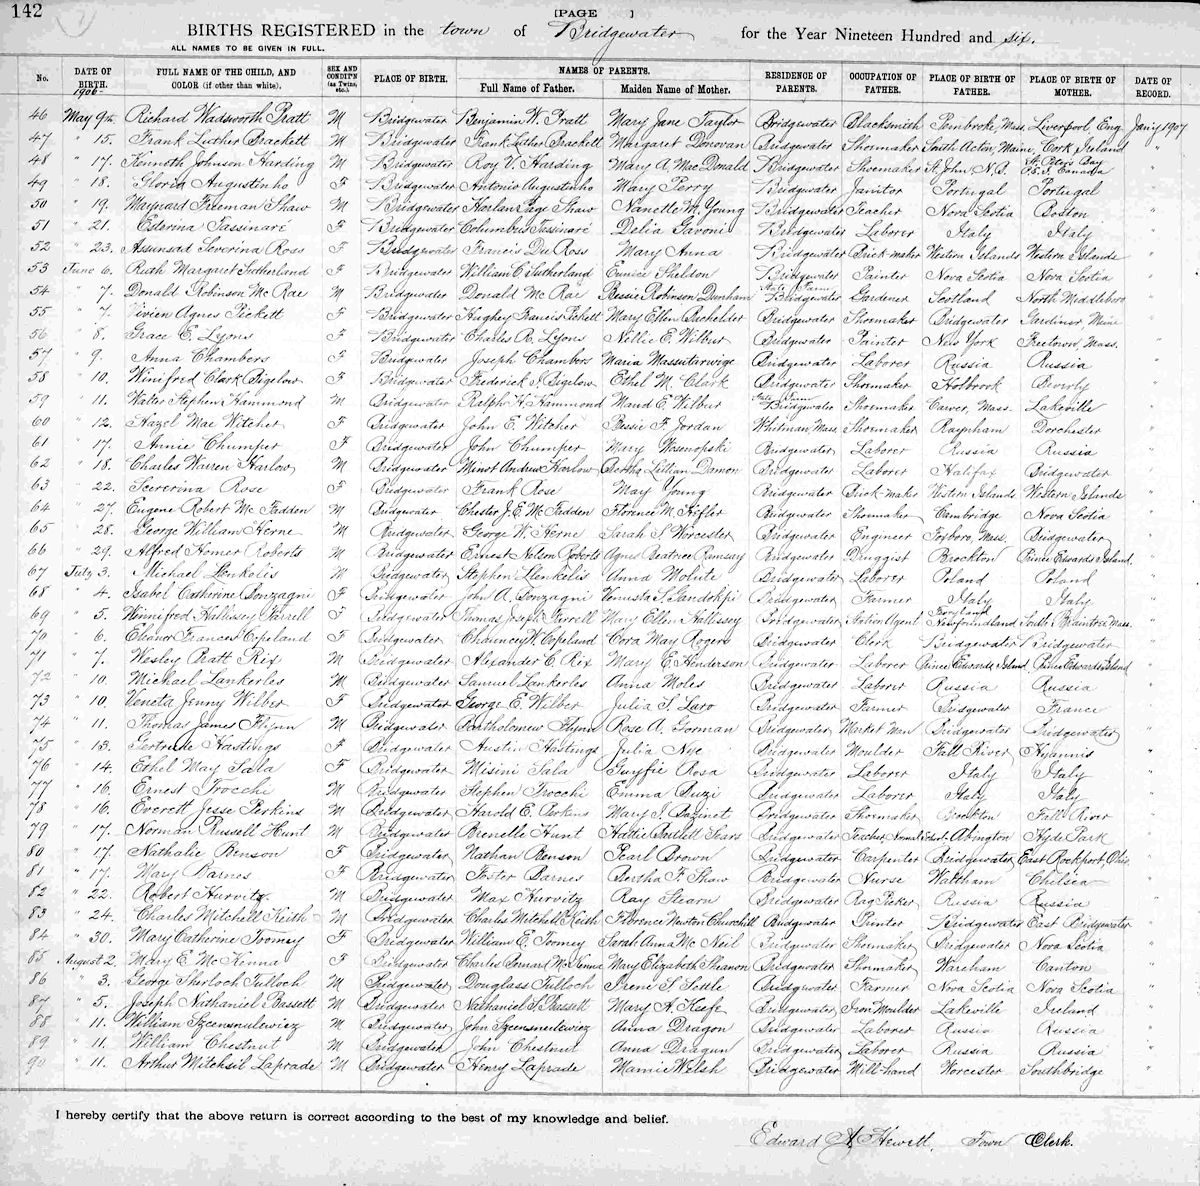 142
[PAGE ]
BIRTHS REGISTERED in the town of Bridgewater for the Year Nineteen Hundred and six.
ALL NAMES TO BE GIVEN IN FULL.
No. DATE OF BIRTH. 1906 FULL NAME OF THE CHILD, AND COLOR (if other than white). SEX AND CONDIT'N (as Twins, etc.) PLACE OF BIRTH. NAMES OF PARENTS. Full Name of Father. Maiden Name of Mother. RESIDENCE OF PARENTS. OCCUPATION OF FATHER. PLACE OF BIRTH OF FATHER. PLACE OF BIRTH OF MOTHER. DATE OF RECORD.
46 May 9th Richard Wadsworth Pratt M Bridgewater Benjamin W. Pratt Mary Jane Taylor Bridgewater Blacksmith Pembroke, Mass. Liverpool, Eng. Jan'y 1907
47 " 15. Frank Luther Brackett M Bridgewater Frank Luther Brackett Margaret Donovan Bridgewater Shoemaker South Acton, Maine, Cork Ireland "
48 " 17. Kenneth Johnson Harding M Bridgewater Roy V. Harding Mary A. MacDonald Bridgewater Shoemaker St. John N.B. St. Peters Bay P.E.I. Canada "
49 " 18. Gloria Augustinho F Bridgewater Antonio Augustinho Mary Perry Bridgewater Janitor Portugal Portugal "
50 " 19. Maynard Freeman Shaw M Bridgewater Harlan Page Shaw Nanette M. Young Bridgewater Teacher Nova Scotia Boston "
51 " 21. Esterina Tassinari F Bridgewater Columbus Tassinari Delia Gavoni Bridgewater Laborer Italy Italy "
52 " 23. Assunsad Severina Ross F Bridgewater Francis Du Ross Mary Anna Bridgewater Brick-maker Western Islands Western Islands "
53 June 6. Ruth Margaret Sutherland F Bridgewater William O. Sutherland Eunice Sheldon Bridgewater Painter Nova Scotia Nova Scotia "
54 " 7. Donald Robinson McRae M Bridgewater Donald McRae Bessie Robinson Dunham State Farm Bridgewater Gardener Scotland North Middleboro "
55 " 7. Vivien Agnes Pickett F Bridgewater Hughey Francis Pickett Mary Ellen Bachelder Bridgewater Shoemaker Bridgewater Gardiner Maine "
56 " 8. Grace E. Lyons F Bridgewater Charles R. Lyons Nellie E. Wilbur Bridgewater Painter New York Freetown, Mass. "
57 " 9. Anna Chambers F Bridgewater Joseph Chambers Maria Bridgewater Laborer Russia Russia "
58 " 10. Winifred Clark Bigelow F Bridgewater Frederick S. Bigelow Ethel M. Clark Bridgewater Shoemaker Holbrook Beverly "
59 " 11. Walter Stephen Hammond M Bridgewater Ralph H. Hammond Maud E. Wilbur State Farm Bridgewater Shoemaker Carver, Mass. Lakeville "
60 " 12. Hazel Mae Witcher F Bridgewater John E. Witcher Bessie F. Jordan Whitman, Mass. Shoemaker Raynham Dorchester "
61 " 17. Annie Chumper F Bridgewater John Chumper Mary Wosonopski Bridgewater Laborer Russia Russia "
62 " 18. Charles Warren Harlow M Bridgewater Minot Andrew Harlow Bertha Lillian Damon Bridgewater Laborer Halifax Bridgewater "
63 " 22. Rose F Bridgewater Frank Rose Mary Young Bridgewater Brick-maker Western Islands Western Islands "
64 " 27. Eugene Robert McFadden M Bridgewater Chester J.E. McFadden Florence M. Hifler Bridgewater Shoemaker Cambridge Nova Scotia "
65 " 28. George William Herne M Bridgewater George W. Herne Sarah S. Worcester Bridgewater Engineer Foxboro, Mass. Bridgewater "
66 " 29. Alfred Homer Roberts M Bridgewater Ernest Nelson Roberts Agnes Beatrice Ramsay Bridgewater Druggist Brockton Prince Edwards Island "
67 July 3. Michael Lenkelis M Bridgewater Stephen Lenkelis Anna Molute Bridgewater Laborer Poland Poland "
68 " 4. Isabel Catherine Bonzagni F Bridgewater John A. Bonzagni Venusta S. Gandolfi Bridgewater Farmer Italy Italy "
69 " 5. Winnifred Hallissey Farrell F Bridgewater Thomas Joseph Ferrell Mary Ellen Hallissey Bridgewater Station Agent Newfoundland South Braintree Mass. "
70 " 6. Eleanor Frances Copeland F Bridgewater Chauncey W. Copeland Cora May Rogers Bridgewater Clerk Bridgewater Bridgewater "
71 " 7. Wesley Pratt Rix M Bridgewater Alexander E. Rix Mary E. Henderson Bridgewater Laborer Prince Edwards Island Prince Edwards Island "
72 " 10. Michael Lankerles M Bridgewater Samuel Lankerles Anna Moles Bridgewater Laborer Russia Russia "
73 " 10. Veneta Jenny Wilber F Bridgewater George E. Wilber Julia S. Laro Bridgewater Farmer Bridgewater France "
74 " 11. Thomas James Flynn M Bridgewater Bartholomew Flynn Rose A. Gorman Bridgewater Market Man Bridgewater Bridgewater "
75 " 13. Gertrude Hastings F Bridgewater Austin Hastings Julia Nye Bridgewater Moulder Fall River Hyannis "
76 " 14. Ethel May Sala F Bridgewater Misini Sala Guyfie Rosa Bridgewater Laborer Italy Italy "
77 " 16. Ernest Trocchi M Bridgewater Stephen Trocchi Emma Buzi Bridgewater Laborer Italy Italy "
78 " 16. Everett Jesse Perkins M Bridgewater Harold E. Perkins Mary J. Bazinet Bridgewater Shoemaker Brockton Fall River "
79 " 17. Norman Russell Hunt M Bridgewater Brenelle Hunt Hattie Sears Bridgewater Teacher, Normal School Abington Hyde Park "
80 " 17. Nathalie Benson F Bridgewater Nathan Benson Pearl Brown Bridgewater Carpenter Bridgewater East Rockport, Ohio "
81 " 17. Mary Barnes F Bridgewater Foster Barnes Bertha F. Shaw Bridgewater Nurse Waltham Chelsea "
82 " 22. Robert Hurvitz M Bridgewater Max Hurvitz Ray Stearn Bridgewater Rag Picker Russia Russia "
83 " 24. Charles Mitchell Keith M Bridgewater Charles Mitchell Keith Florence Newton Churchill Bridgewater Printer Bridgewater East Bridgewater "
84 " 30. Mary Catherine Toomey F Bridgewater William E. Toomey Sarah Anna McNeil Bridgewater Shoemaker Bridgewater Nova Scotia "
85 August 2. Mary E. McKenna F Bridgewater Charles Bernard McKenna Mary Elizabeth Sheanon Bridgewater Shoemaker Wareham Canton "
86 " 3. George Sherlock Tulloch M Bridgewater Douglass Tulloch Irene S. Settle Bridgewater Farmer Nova Scotia Nova Scotia "
87 " 5. Joseph Nathaniel Bassett M Bridgewater Nathaniel S. Bassett Mary A. Keefe Bridgewater Iron Moulder Lakeville Ireland "
88 " 11. William Szemsnulewiez M Bridgewater John Szemsnulewiez Anna Dragon Bridgewater Laborer Russia Russia "
89 " 11. William Chestnut M Bridgewater John Chestnut Anna Dragun Bridgewater Laborer Russia Russia "
90 " 11. Arthur Mitchsil Laprade M Bridgewater Henry Laprade Mamie Welsh Bridgewater Mill-hand Worcester Southbridge "
I hereby certify that the above return is correct according to the best of my knowledge and belief.
Edward A. Hewett, Town Clerk.